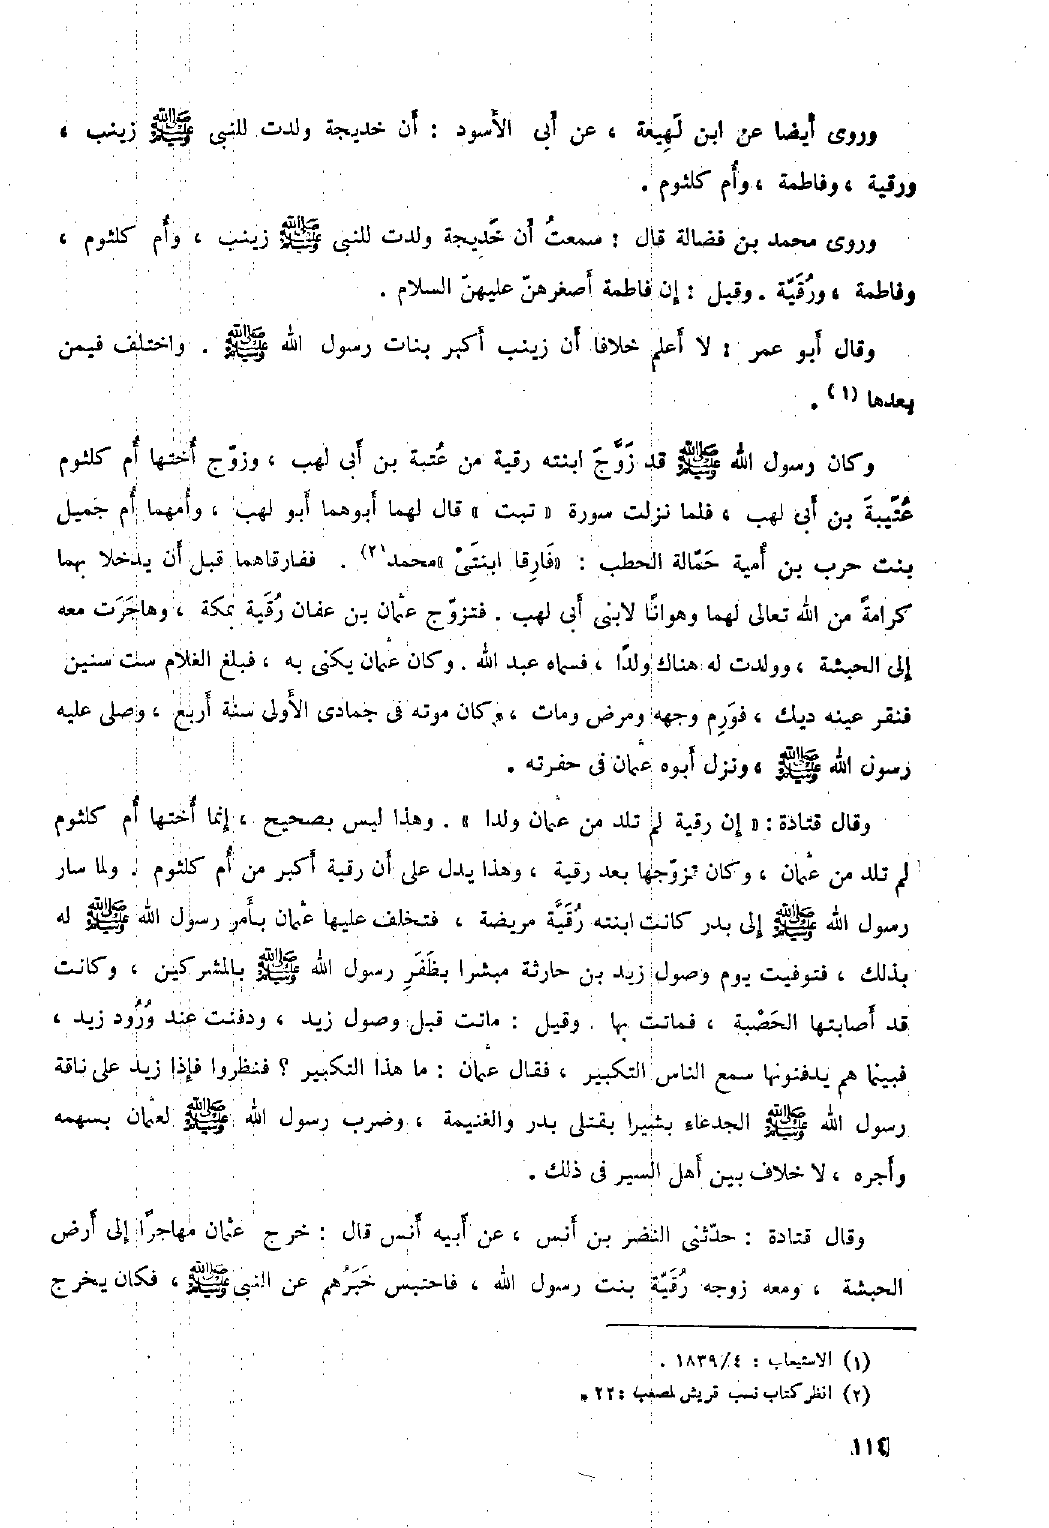 وروى أيضا عن ابن لَهِيعة ، عن أبى الأسود : أن خديجة ولدت للنبى ﷺ زينب ،
ورقية ، وفاطمة ، وأم كلثوم .
وروى محمد بن فضالة قال : سمعتُ أن خَديجة ولدت للنبى ﷺ زينب ، وأم كلثوم ،
وفاطمة ، ورُقَيَّة . وقيل : إن فاطمة أصغرهنّ عليهنّ السلام .
وقال أبو عمر : لا أعلم خلافا أن زينب أكبر بنات رسول الله ﷺ . واختلف فيمن
بعدها (١) .
وكان رسول الله ﷺ قد زَوَّجَ ابنته رقية من عُتبة بن أبى لهب ، وزوّج أختها أم كلثوم
عُتَيبةَ بن أبى لهب ، فلما نزلت سورة « تبت » قال لهما أبوهما أبو لهب ، وأمهما أم جميل
بنت حرب بن أمية حَمّالة الحطب : «فَارِقا ابنتَىْ »محمد (٢) . ففارقاهما قبل أن يدخلا بهما
كرامةً من الله تعالى لهما وهوانًا لابنى أبى لهب . فتزوّج عثمان بن عفان رُقَية بمكة ، وهاجَرَت معه
إلى الحبشة ، وولدت له هناك ولدًا ، فسماه عبد الله . وكان عثمان يكنى به ، فبلغ الغلام ست سنين
فنقر عينه ديك ، فوَرِم وجهه ومرض ومات ، وكان موته فى جمادى الأولى سنة أربع ، وصلى عليه
رسول الله ﷺ ، ونزل أبوه عثمان فى حفرته .
وقال قتادة : « إن رقية لم تلد من عثمان ولدا » . وهذا ليس بصحيح ، إنما أختها أم كلثوم
لم تلد من عثمان ، وكان تزوّجها بعد رقية ، وهذا يدل على أن رقية أكبر من أم كلثوم . ولما سار
رسول الله ﷺ إلى بدر كانت ابنته رُقَيَّة مريضة ، فتخلف عليها عثمان بأمر رسول الله ﷺ له
بذلك ، فتوفيت يوم وصول زيد بن حارثة مبشرا بظَفَرِ رسول الله ﷺ بالمشركين ، وكانت
قد أصابتها الحَصْبة ، فماتت بها . وقيل : ماتت قبل وصول زيد ، ودفنت عند وُرُود زيد ،
فبينما هم يدفنونها سمع الناس التكبير ، فقال عثمان : ما هذا التكبير ؟ فنظروا فإذا زيد على ناقة
رسول الله ﷺ الجدعاء بشيرا بقتلى بدر والغنيمة ، وضرب رسول الله ﷺ لعثمان بسهمه
وأجره ، لا خلاف بين أهل السير فى ذلك .
وقال قتادة : حدّثنى النضر بن أنس ، عن أبيه أنس قال : خرج عثمان مهاجرًا إلى أرض
الحبشة ، ومعه زوجه رُقَيّة بنت رسول الله ، فاحتبس خَبَرُهم عن النبى ﷺ ، فكان يخرج
(١) الاستيعاب : ١٨٣٩/٤ .
(٢) انظر كتاب نسب قريش لمصعب : ٢٢ .
١١٤